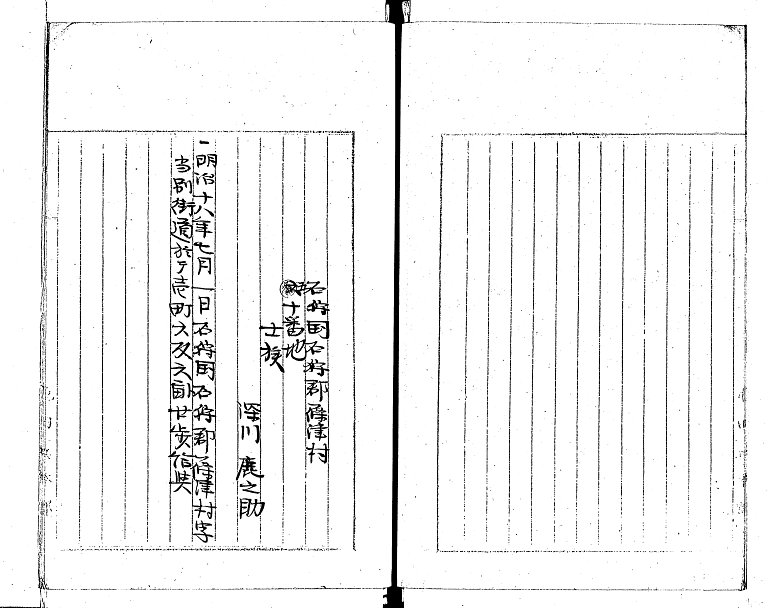 石狩国石狩郡篠津村
十番地
士族
深川鹿之助
一明治十八年七月一日石狩国石狩郡篠津村字
当別街道於テ壱町六反六畝廿歩給与